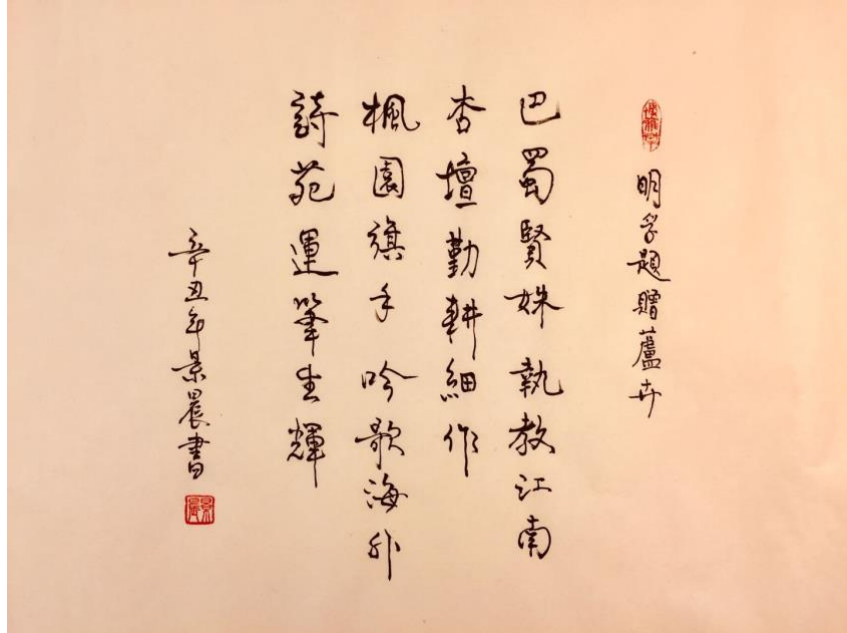 明孚題贈蘆卉
巴蜀賢姝執教江南
杏壇勤耕細作
楓園旗手吟歌海外
詩苑運筆生輝
辛丑年景晨書
景晨